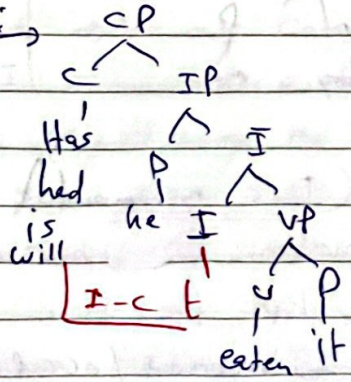 CP
C IP
Has
had
is
will
D Ī
he I VP
I-C t
V D
eaten it